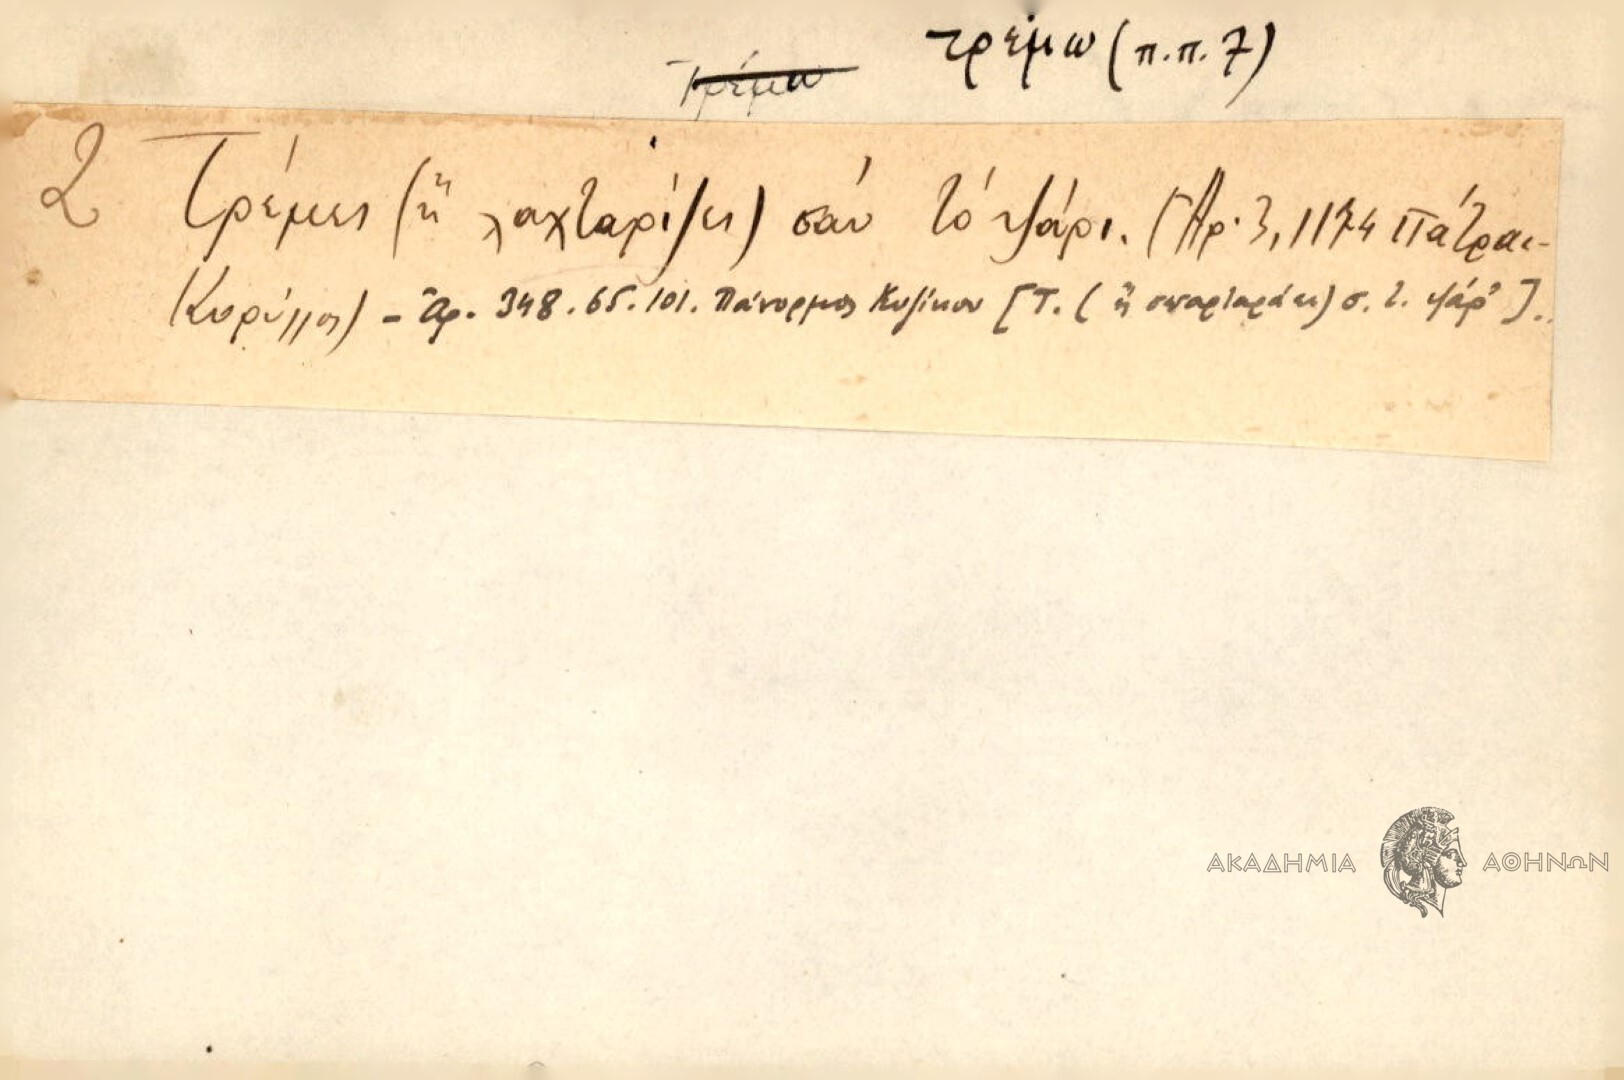 Τρέμω τρέμω (π.π. 7)
2 Τρέμεις (ἢ λαχταρίζεις) σάν τό ψάρι. (Ἀρ. 3, 1174 Πάτραι-
Κορύλλος) - Ἀρ. 348. 65. 101. Πάνορμος Κυζίκου [Τ. (ἢ σπαρταράει) σ. τ. ψάρ']..
ΑΚΑΔΗΜΙΑ ΑΘΗΝΩΝ